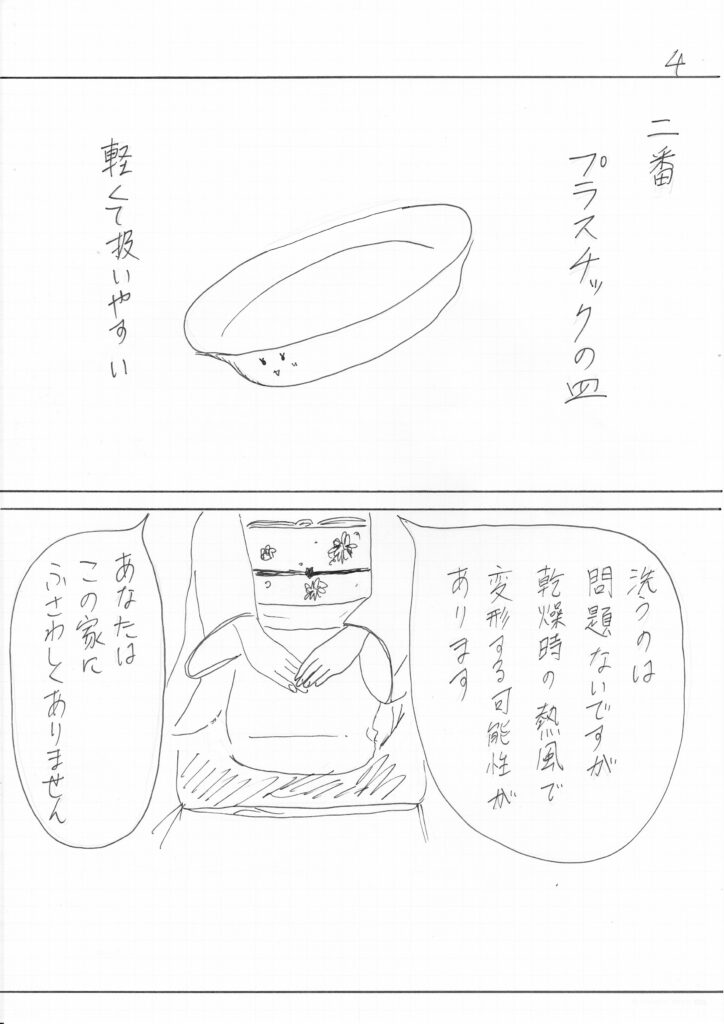 4
二番
プラスチックの皿
軽くて扱いやすい
洗うのは
問題ないですが
乾燥時の熱風で
変形する可能性が
あります
あなたは
この家に
ふさわしくありません